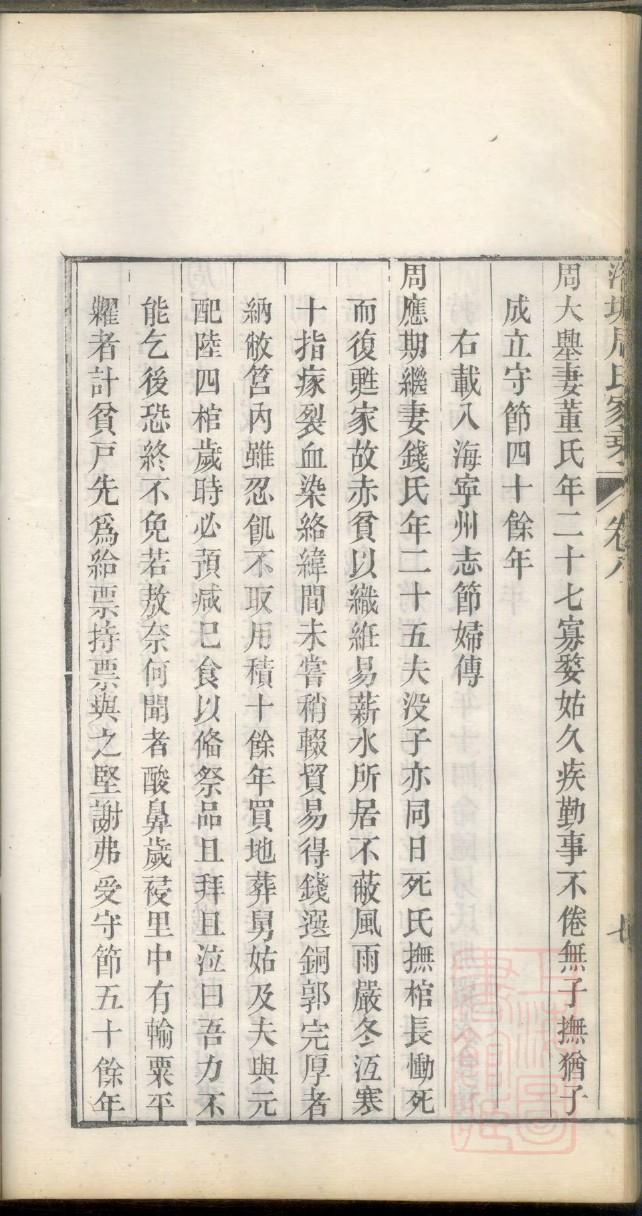 周氏家乘 卷八
周大舉妻董氏年二十七寡嫠姑久疾勤事不倦無子撫猶子
成立守節四十餘年
右載入海寧州志節婦傳
周應期繼妻錢氏年二十五夫没子亦同日死氏撫棺長慟死
而復甦家故赤貧以織絍易薪水所居不蔽風雨嚴冬沍寒
十指瘃裂血染絡緯間未嘗稍輟貿易得錢選銅郭完厚者
納敝筥內雖忍飢不取用積十餘年買地葬舅姑及夫與元
配陸四棺歲時必預減巳食以俻祭品且拜且泣曰吾力不
能乞後恐終不免若敖奈何聞者酸鼻歲祲里中有輸粟平
糶者計貧戸先爲給票持票與之堅謝弗受守節五十餘年